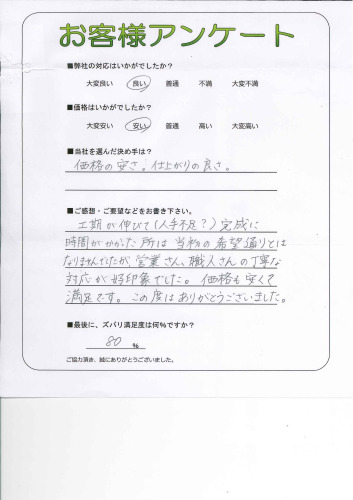 お客様アンケート
■弊社の対応はいかがでしたか？
大変良い 良い 普通 不満 大変不満
■価格はいかがですか？
大変安い 安い 普通 高い 大変高い
■当社を選んだ決め手は？
価格の安さ。仕上がりの良さ。
■ご感想・ご要望などをお書き下さい。
工期が伸びて(人手不足？)完成に
時間がかかった所は当初の希望通りとは
なりませんでしたが、営業さん、職人さんの丁寧な
対応が好印象でした。価格も安くて
満足です。この度はありがとうございました。
■最後に、ズバリ満足度は何％ですか？
80 %
ご協力頂き、誠にありがとうございました。